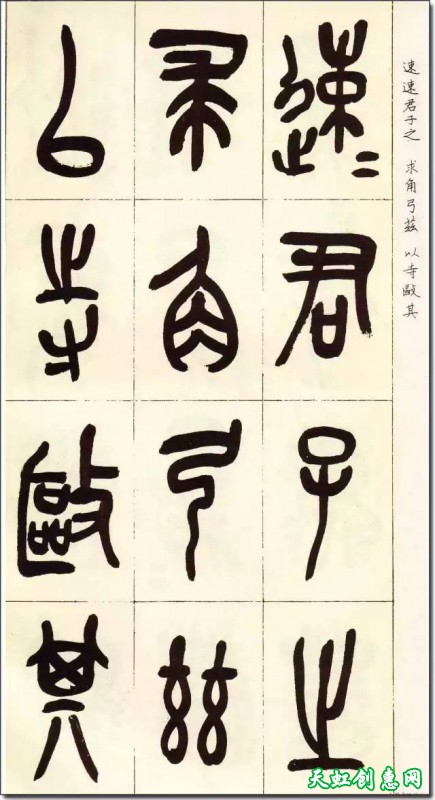 速速君子之 求角弓茲 以寺敺其
速＝君子之
求角弓茲
以寺敺其
天虹创意网